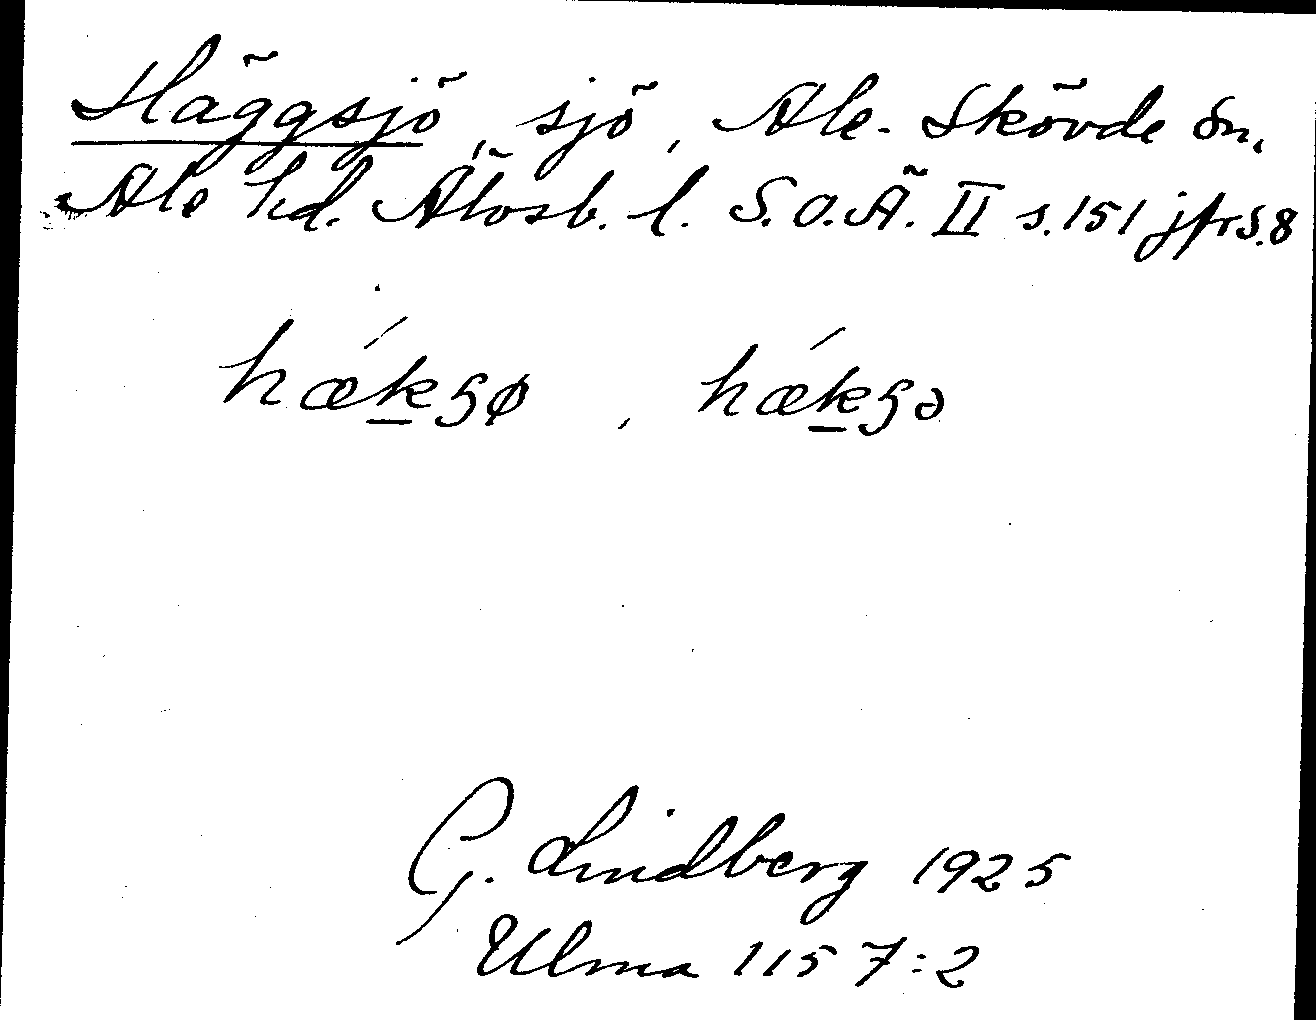 Häggsjö, sjö, Ale-Skövde sn,
Ale hd. Älvsb. l. S.O.Ä. II s.151 jfr s.8
hǽk̲ʂø, hǽk̲ʂə
G. Lindberg 1925
Ulma 1157:2